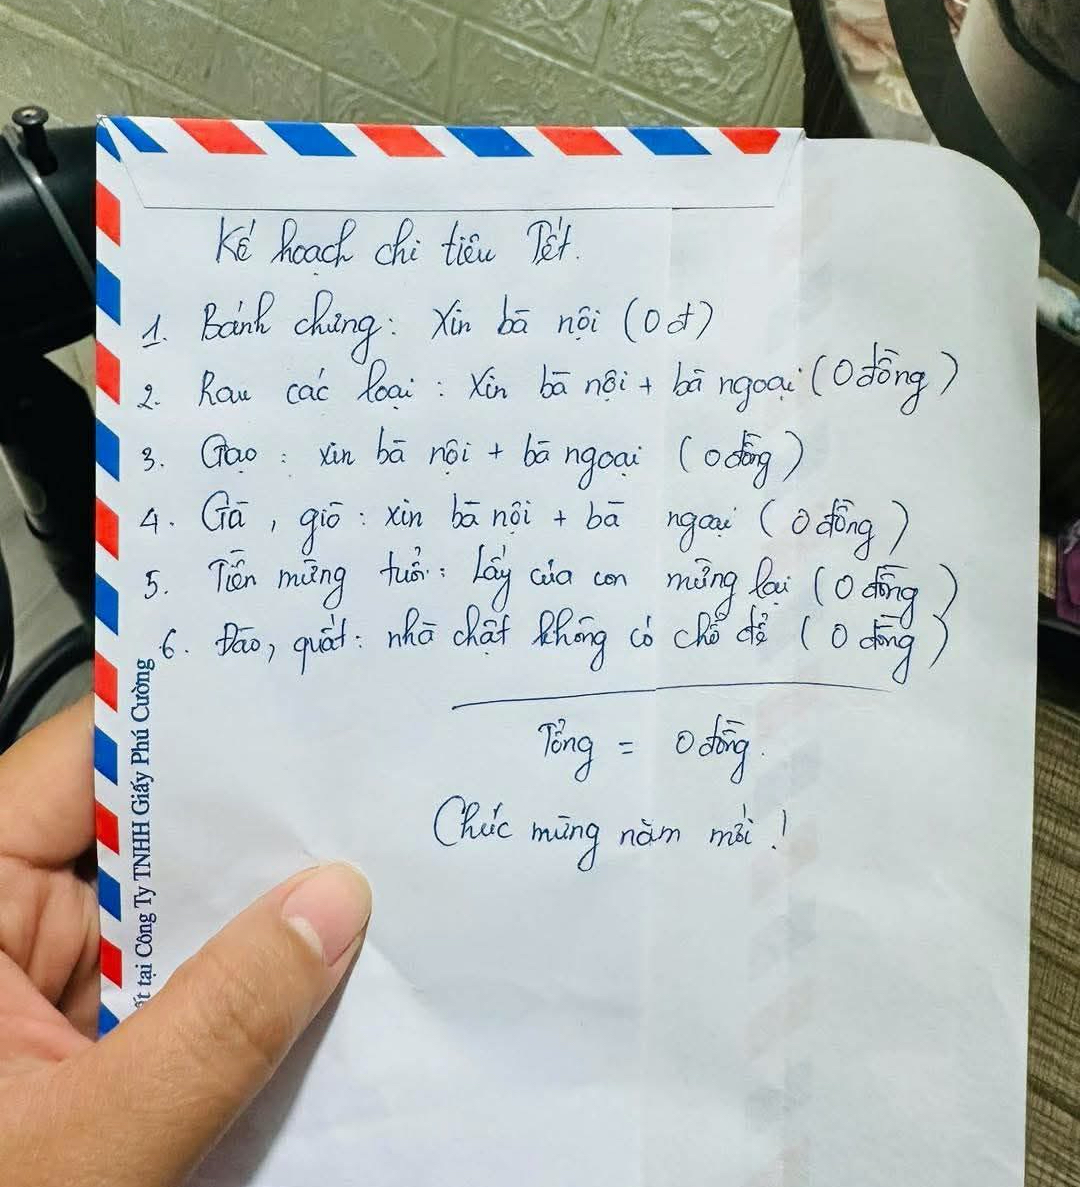 Kế hoạch chi tiêu Tết.
1. Bánh chưng: Xin bà nội (0 đ)
2. Rau các loại : Xin bà nội + bà ngoại (0 đồng)
3. Gạo : xin bà nội + bà ngoại (0 đồng)
4. Gà , giò : xin bà nội + bà ngoại (0 đồng)
5. Tiền mừng tuổi: Lấy của con mừng lại (0 đồng)
6. Đào, quất: nhà chật không có chỗ để (0 đồng)
Tổng = 0 đồng.
Chúc mừng năm mới !
tại Công Ty TNHH Giấy Phú Cường